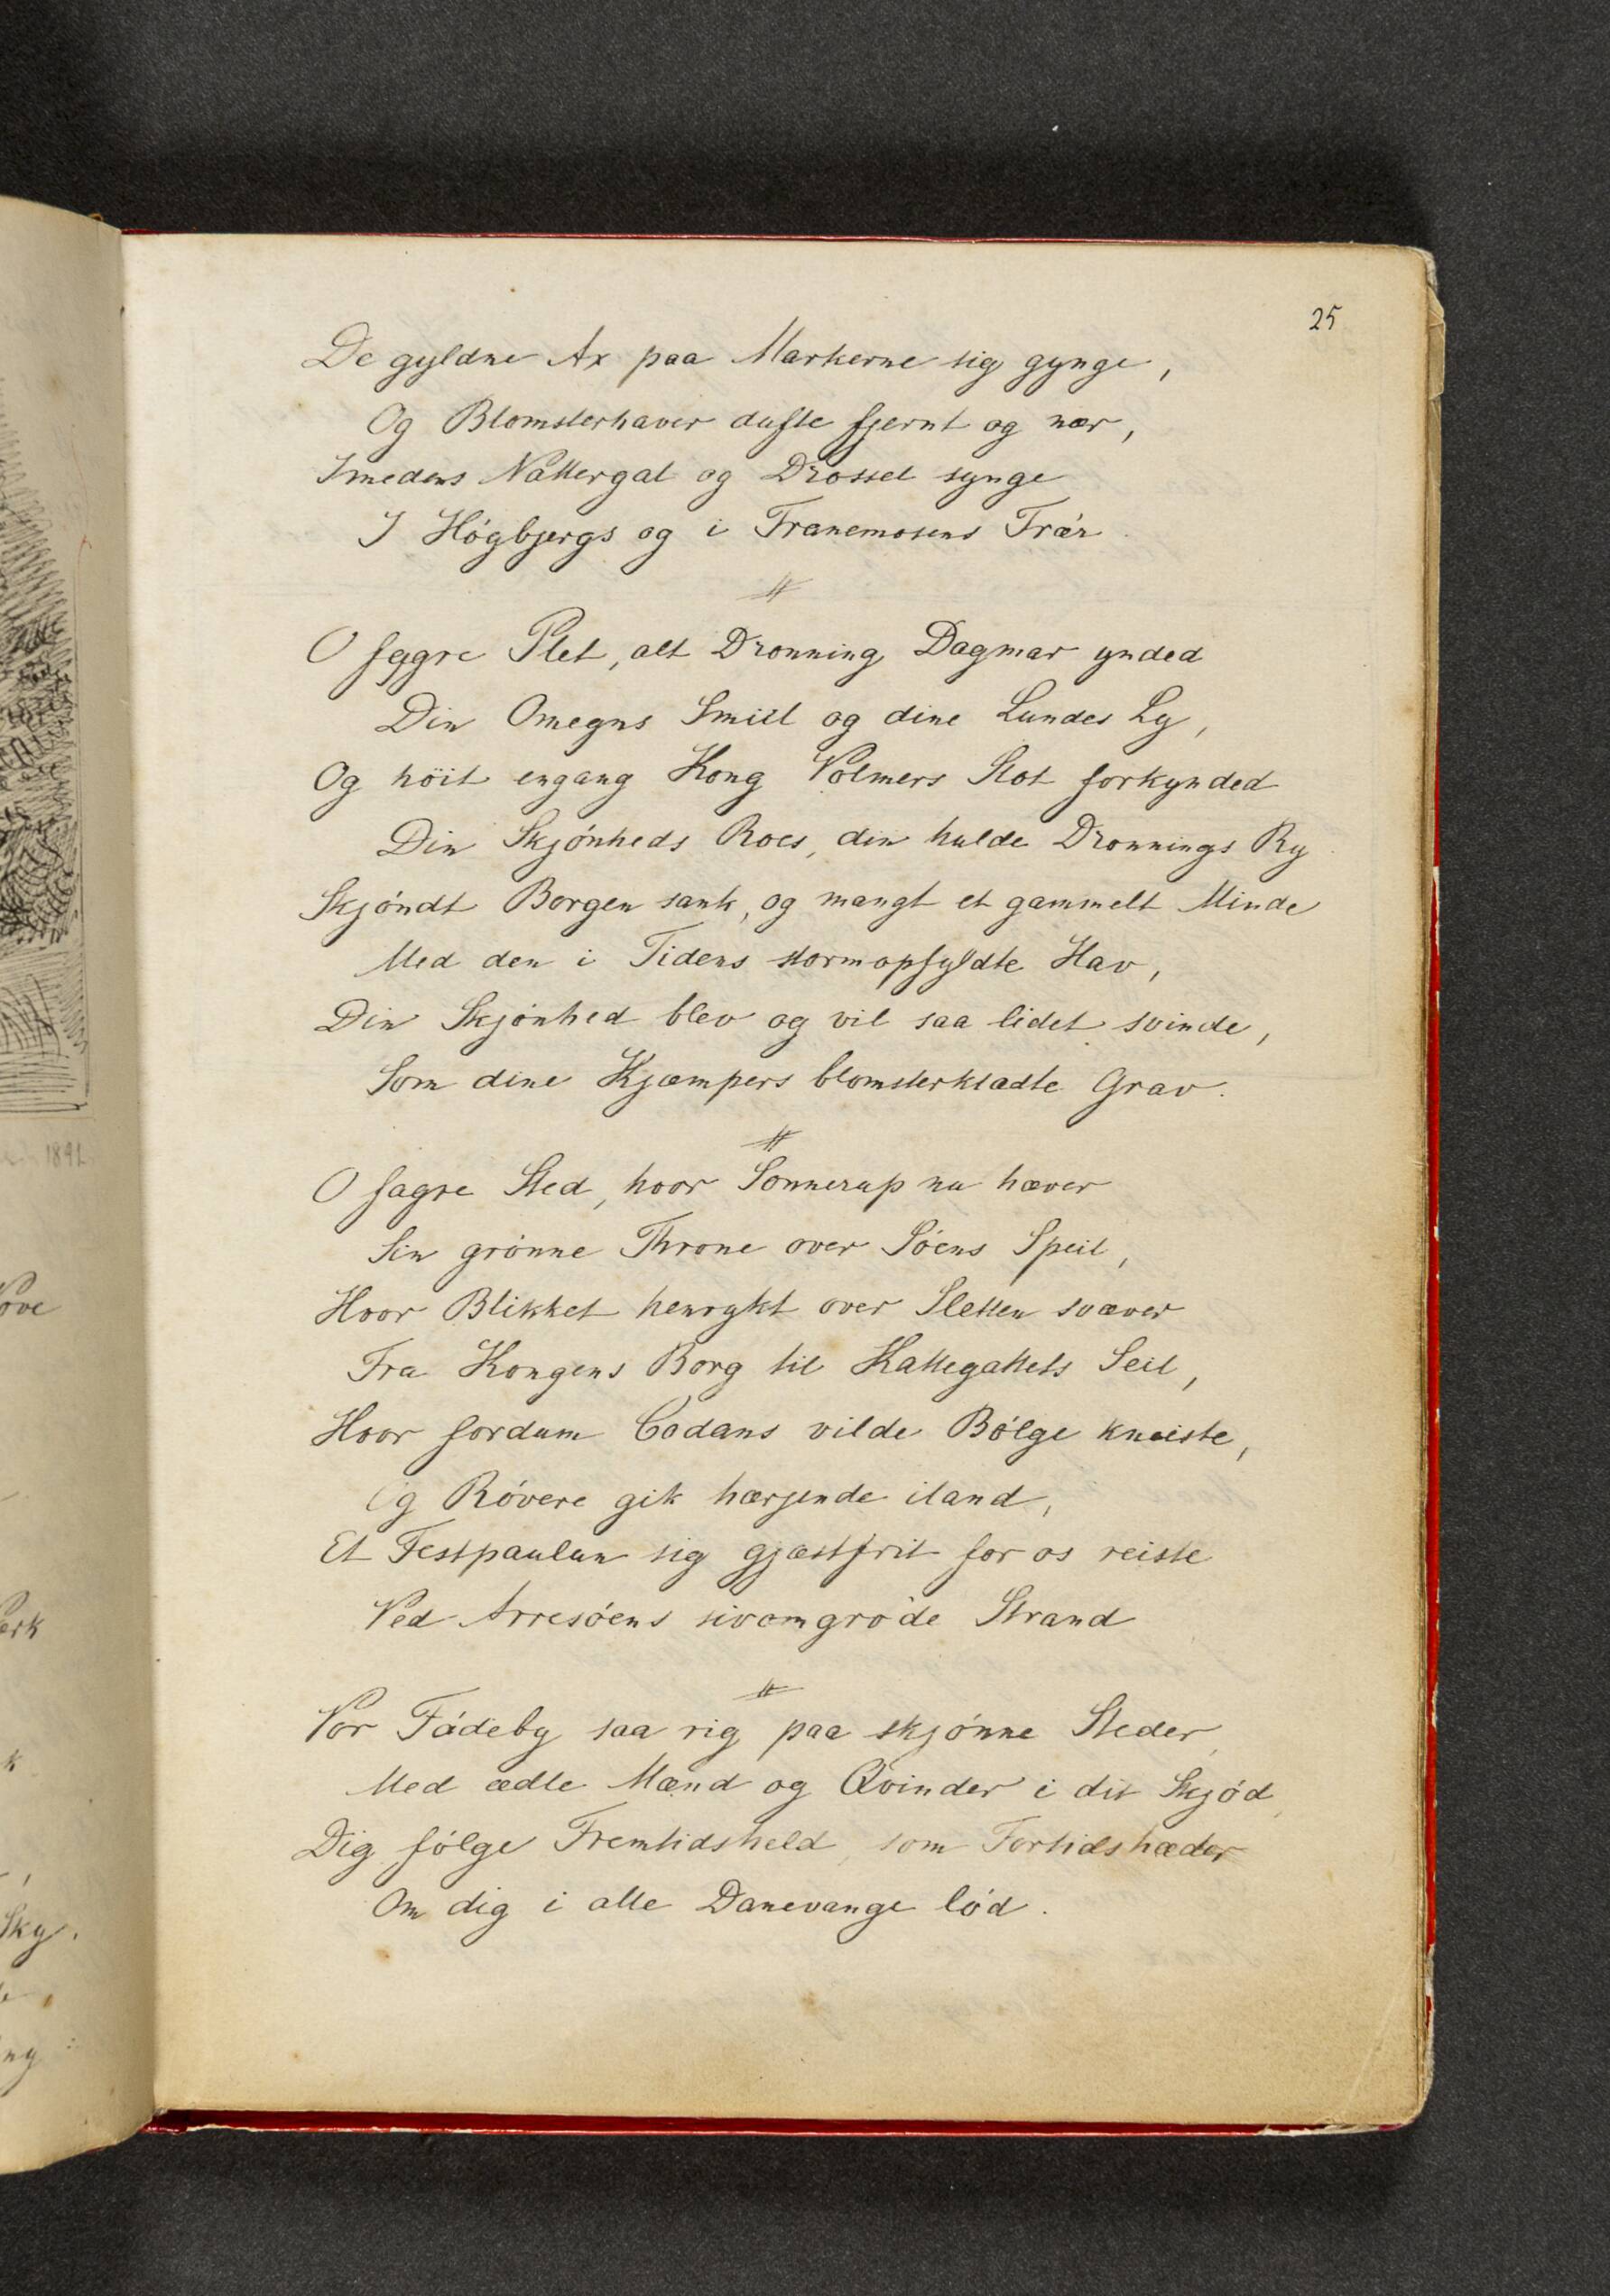 25
De gyldne Ax paa Markerne sig gynge,
Og Blomsterhaver dufte fjernt og nær,
Imedens Nattergal og Drossel synge
I Högbjergs og i Tranemosens Træer.
O fagre Plet, alt Dronning Dagmar ynded
Din Omegns Smiil og dine Lundes Ly,
Og höit engang Kong Volmers Slot forkynded
Din Skjónheds Roes, din hulde Dronnings Ry.
Skjóndt Borgen sank, og mangt et gammelt Minde
Med den i Tidens stormopfyldte Hav,
Din Skjónhed blev og vil saa lidet svinde,
Som dine Kjæmpers blomsterklædte Grav.
O fagre Sted, hvor Sonnerup nu hæver
Sin grónne Throne over Sóens Speil,
Hvor Blikket henrykt over Sletten svæver
Fra Kongens Borg til Kattegattets Seil,
Hvor fordum Codans vilde Bólge kneiste,
Og Róvere gik hærjende iland,
Et Festpaulun sig gjæstfrit for os reiste
Ved Arresóens sivomgróde Strand
Vor Fódeby saa rig paa skjónne Steder,
Med ædle Mænd og Qvinder i dit Skjód,
Dig fólge Fremtidsheld, som Fortidshæder
Om dig i alle Danevange lód.
1891
ove
erk
k
Sky.
ny